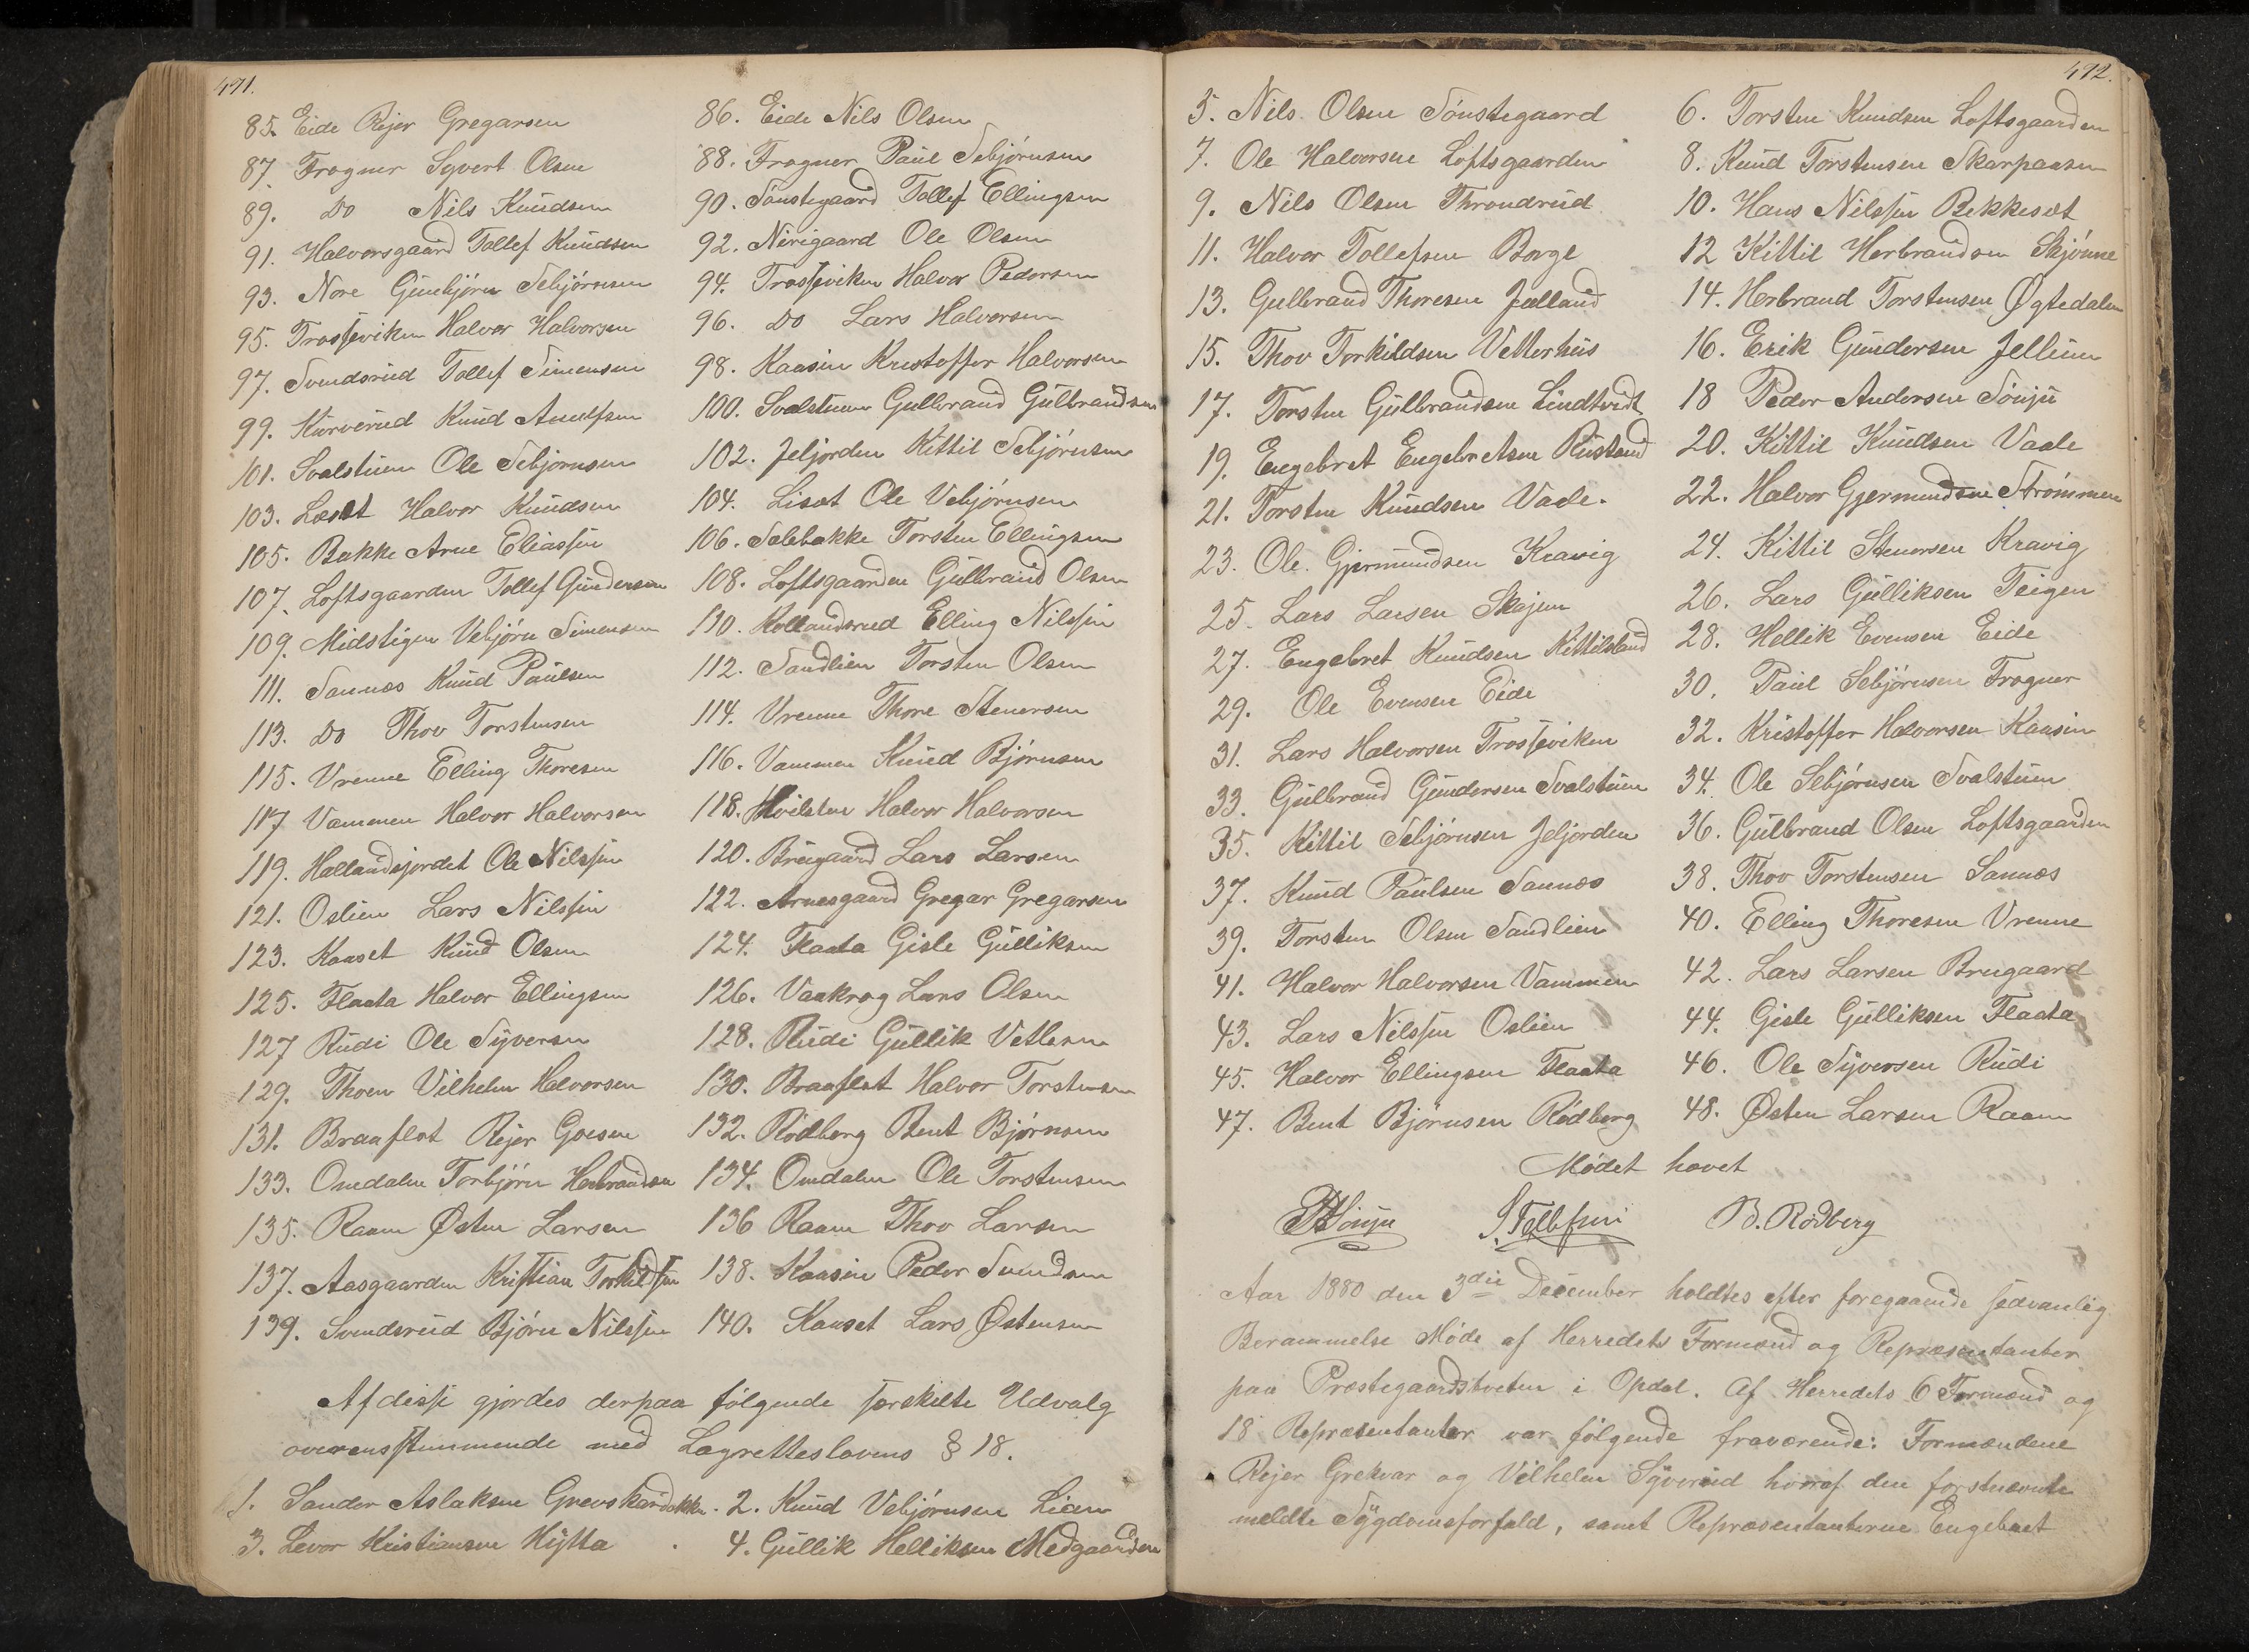 491.
85. Eide Rejer Gregarsen 86. Eide Nils Olsen
87. Frogner Syvert Olsen 88. Frogner Paul Sebjørnsen
89. Do Nils Knudsen 90. Sønstegaard Tollef Ellingsen
91. Halvorsgaard Tollef Knudsen 92. Nerigaard Ole Olsen
93. Nore Gunbjørn Sebjørnsen 94. Trosseviken Halvor Pedersen
95. Trosseviken Halvor Halvorsen 96. Do Lars Halvorsen
97. Svendsrud Tollef Simensen 98. Kaasin Kristoffer Halvorsen
99. Kurverud Knud 100. Svalstuen Gulbrand Gulbrandsen
101. Svalstuen Ole Sebjørnsen 102. Jeljorden Kittil Sebjørnsen
103. Læset Halvor Knudsen 104. Lisæt Ole Vebjørnsen
105. Bakke Arne Eliassen 106. Solebakke Torsten Ellingsen
107. Loftsgaarden Tollef Gundersen 108. Loftsgaarden Gulbrand Olsen
109. Midstigen Vebjørn Simensen 110. Hollandsrud Elling Nilssen
111. Sannæs Knud Paulsen 112. Sandlien Torsten Olsen
113. Do Thov Torstensen 114. Vrenne Thore Stenersen
115. Vrenne Elling Thoresen 116. Vammen Knud Bjørnsen
117 Vammen Halvor Halvorsen 118. Hvilsten Halvor Halvorsen
119. Hallandsjordet Ole Nilssen 120. Brugaard Lars Larsen
121. Oslien Lars Nilssen 122. Arnesgaard Gregar Gregarsen
123. Kaaset Knud Olsen 124. Flaata Gisle Gulliksen
125. Flaata Halvor Ellingsen 126. Vaakrag Lars Olsen
127 Rudi Ole Syversen 128. Rudi Gullik Vetlesen
129. Thoen Vilhelm Halvorsen 130. Braaflat Halvor Torstensen
131. Braaflot Rejer Goesen 132. Rødberg Bent Bjørnsen
133. Omdalen Torbjørn Herbrandsen 134. Omdalen Ole Torstensen
135. Raaen Østen Larsen 136 Raaen Thov Larsen
137. Aasgaarden Kristian Torkildsen 138. Kaasin Peder Svendsen
139. Svendsrud Bjørn Nilssen 140. Kaaset Lars Østensen
Af disse gjordes derpaa følgende særskilte Udvalg
overensstemmende med Lagretteslovens § 18.
1. Sander Aslaksen Grevskardbakke. 2. Knud Vebjørnsen Lien
3. Levor Kristiansen Hytta. 4. Gullik Helliksen Medgaarden
492.
5. Nils Olsen Sønstegaard 6. Torsten Knudsen Loftsgaarden
7. Ole Halvorsen Loftsgaarden 8. Knud Torstensen Skarpaasen
9. Nils Olsen Throndrud 10. Hans Nilssen Bekkesæt
11. Halvor Tollefsen Borge 12 Kittil Herbrandsen Skjønne
13. Gulbrand Thoresen Jælland 14. Herbrand Torstensen Øgtedalen
15. Thov Torkildsen Vetterhus 16. Erik Gundersen Jelluen
17. Torsten Gulbrandsen Lindtvedt 18 Peder Andersen Sønju
19. Engebret Engebretsen Rustand 20. Kittil Knudsen Vaale
21. Torsten Knudsen Vaale. 22. Halvor Gjermundsen Strømmen
23. Ole Gjermundsen Kravig 24. Kittil Stenersen Kravig
25. Lars Larsen Skajem 26. Lars Gulliksen Teigen
27. Engebret Knudsen Kittilsland 28. Hellik Evensen Eide
29. Ole Evensen Eide 30. Paul Sebjørnsen Frogner
31. Lars Halvorsen Trosseviken 32. Kristoffer Halvorsen Kaasin
33. Gulbrand Gundersen Svalstuen 34. Ole Sebjørnsen Svalstuen
35. Kittil Sebjørnsen Jeljorden 36. Gulbrand Olsen Loftsgaarden
37. Knud Paulsen Sannæs 38. Thov Torstensen Sannæs
39. Torsten Olsen Sandlien 40. Elling Thoresen Vrenne
41. Halvor Halvorsen Vammen 42. Lars Larsen Brugaard
43. Lars Nilssen Oslien 44. Gisle Gulliksen Flaata
45. Halvor Ellingsen Flaata 46. Ole Syversen Rudi
47. Bent Bjørnsen Rødberg 48. Østen Larsen Raaen
Mødet hævet
Sønju S. Tollefsen B. Rødberg
Aar 1880 den 3die December holdtes efter foregaaende sædvanlig
Berammelse Møde af Herredets Formænd og Repræsentanter
paa Præstegaardstveten i Opdal. Af Herredets 6 Formænd og
18 Repræsentanter var følgende fraværende: Formændene
Rejer Grekvar og Vilhelm Syverud hvoraf den førstnævnte
meldte Sygdomsforfald, samt Repræsentanterne Engebret